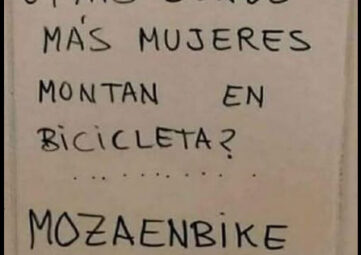 MÁS MUJERES
MONTAN EN
BiCiCLETA?
...........
MOZAENBIKE